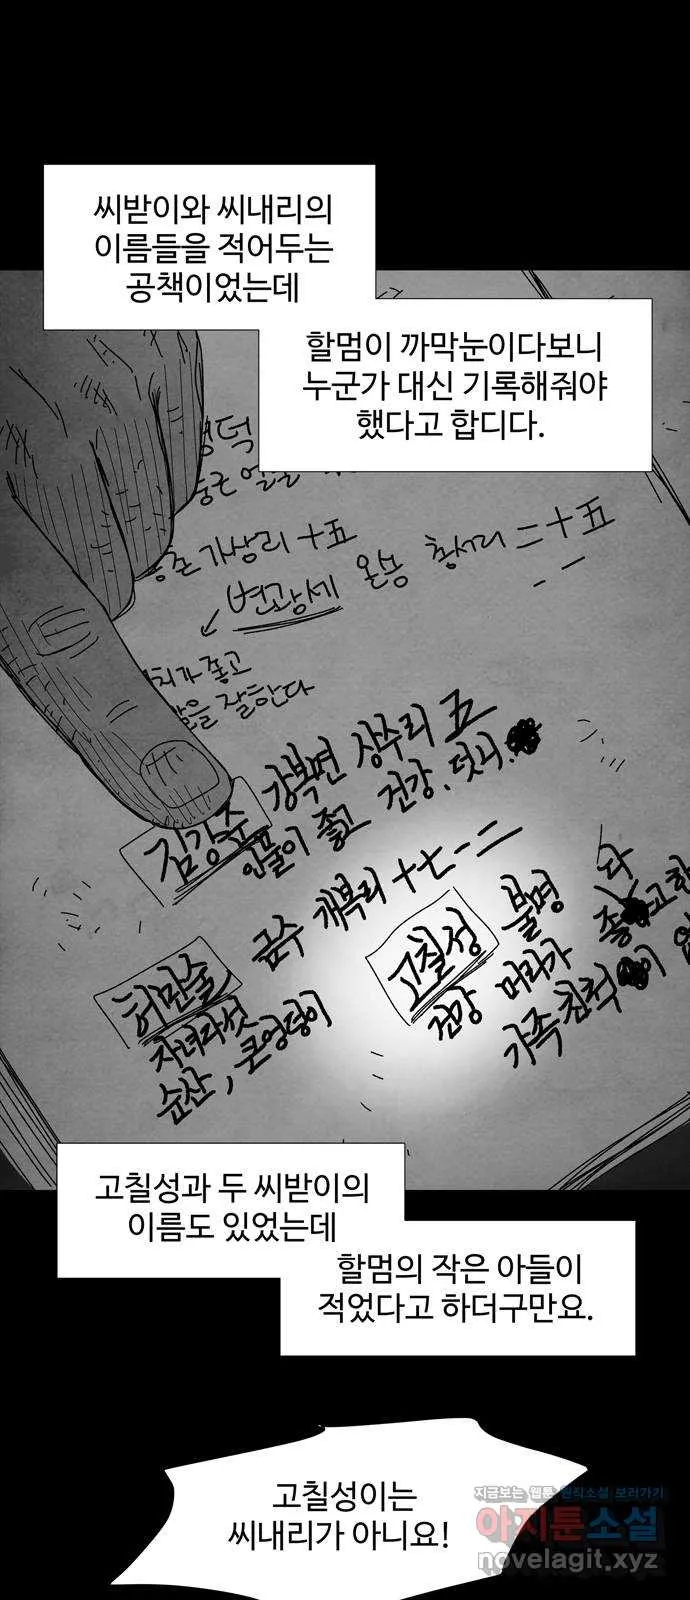 씨받이와 씨내리의
이름들을 적어두는
공책이었는데
할멈이 까막눈이다보니
누군가 대신 기록해줘야
했다고 합디다.
가상리 十五
변광세 온양 총서리 二十五
좋고
잘한다
김강순 강북면 상수리 五
인물이 좋고 건강. 덧니.
허만술 금수 개복리 十七-二
자녀다섯
순산, 큰엉덩이
고칠성 불명
건강 머리가 좋고
가족친척이
고칠성과 두 씨받이의
이름도 있었는데
할멈의 작은 아들이
적었다고 하더구만요.
고칠성이는
씨내리가 아니요!
지금보는 웹툰 원작소설 보러가기
아지툰소설
novelagit.xyz